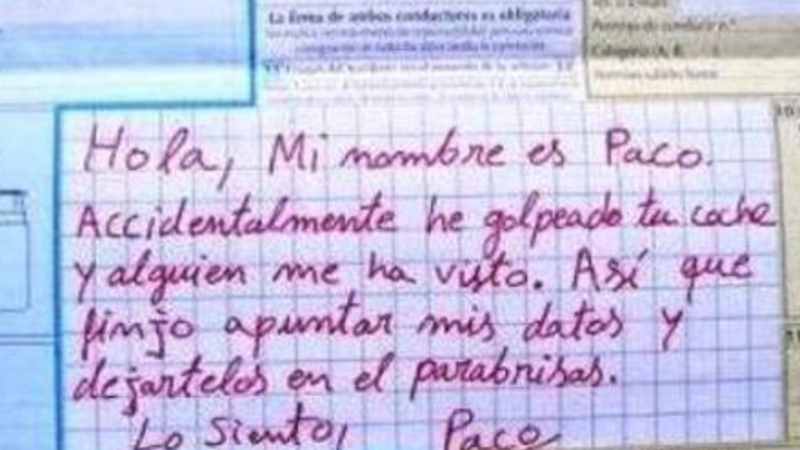 La firma de ambos conductores es obligatoria
Permiso de conducir n.º
Categoría (A, B
Hola, Mi nombre es Paco.
Accidentalmente he golpeado tu coche
y alguien me ha visto. Así que
finjo apuntar mis datos y
dejartelos en el parabrisas.
Lo Siento, Paco